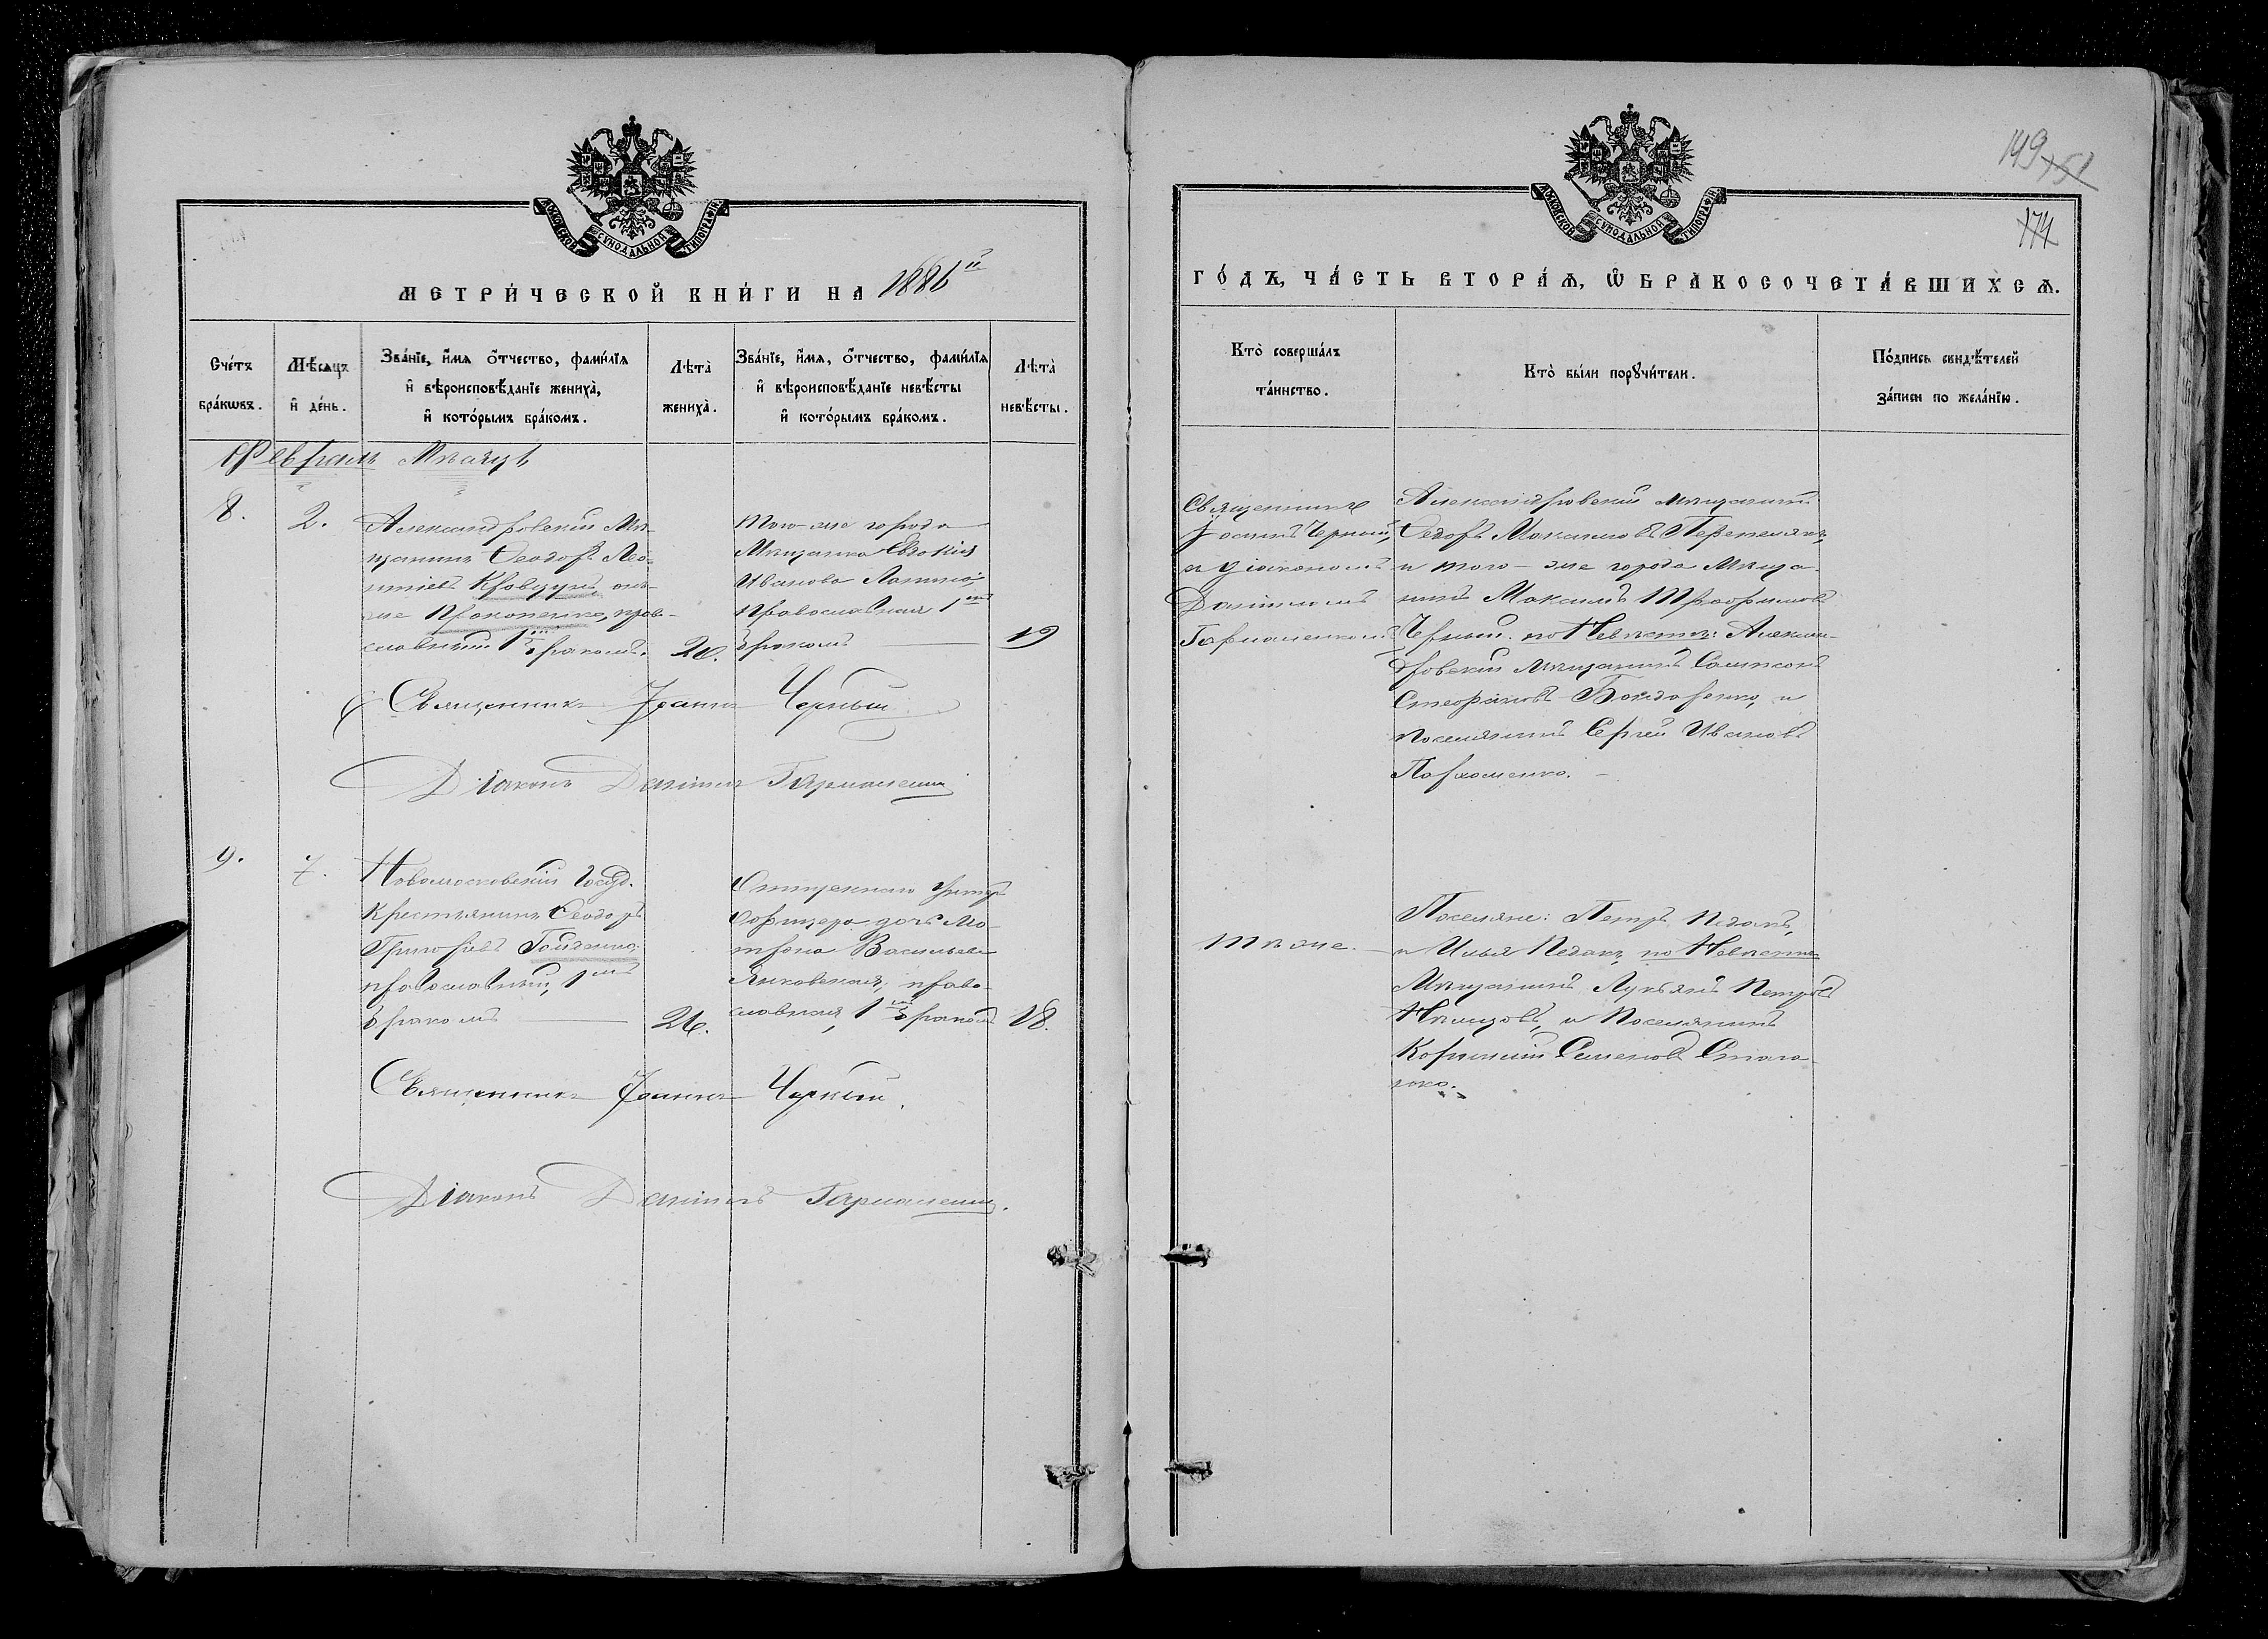 МОСКОВСКОЙ СѴНОДАЛЬНОЙ ТИПОГРАФІИ
МЕТРИ́ЧЕСКОЙ КНИ́ГИ НА 1886й
Сче́тъ бра́кѡвъ.
Мѣ́сяцъ и҆ де́нь.
Зва́нїе, и҆́мя ѻ҆́тчество, фами́лїя
и҆ вѣроисповѣ́данїе жениха̀,
и҆ кото́рымъ бра́комъ.
Лѣта̀ жениха̀.
Зва́нїе, и҆́мя, ѻ҆́тчество, фами́лїя
и҆ вѣроисповѣ́данїе невѣ́сты
и҆ кото́рымъ бра́комъ.
Лѣта̀ невѣ́сты.
Февраль Мѣсяцъ
8.
2.
Александровскій Мѣ-
щанинъ Ѳеодоръ Лео-
нтіевъ Кровцунъ, онъ-
же Прокопенко, право-
славный 1мъ бракомъ.
26.
Того-же города
Мѣщанка Евдокія
Иванова
православная 1мъ
бракомъ
19
Священникъ Іоаннъ Черный
Діаконъ Даніилъ
9.
7.
Новомосковскій Госуд.
Крестьянинъ Ѳеодоръ
Григорьевъ
православный, 1мъ
бракомъ
26.
Отставнаго Унтеръ
Офицера дочь Ма-
трона Васильева
Янковская, право-
славная, 1мъ бракомъ
18.
Священникъ Іоаннъ Черный.
Діаконъ Даніилъ
149 151
174
МОСКОВСКОЙ СѴНОДАЛЬНОЙ ТИПОГРАФІИ
ГО́ДЪ, ЧА́СТЬ ВТОРА́Я, Ѡ҆ БРАКОСОЧЕТА́ВШИХСЯ.
Кто̀ соверша́лъ
та́инство.
Кто̀ бы́ли порꙋчи́тели.
По́дпись свидѣ́телей
за́писи по жела́нїю.
Священникъ
Іоаннъ Черный,
и діакономъ
Даніиломъ
Александровскій мѣщанинъ
Ѳедоръ Максимовъ Перепелякъ,
и того-же города Мѣща-
нинъ Максимъ Трофимовъ
Черный. по Невѣстѣ: Алексан-
дровскій мѣщанинъ Сампсонъ
Стефановъ Бондаренко, и
поселянинъ Сергѣй Ивановъ
Пархоменко.
Тѣ же.
Поселяне: Петръ Педакъ,
и Илья Педакъ, по Невѣстѣ
Мѣщанинъ Лукьянъ Петровъ
Нѣмцовъ, и Поселянинъ
Корнилій Семеновъ